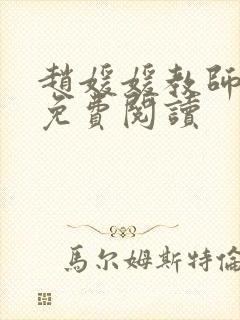 趙媛媛教師
免費閱讀
馬尔姆斯特倫